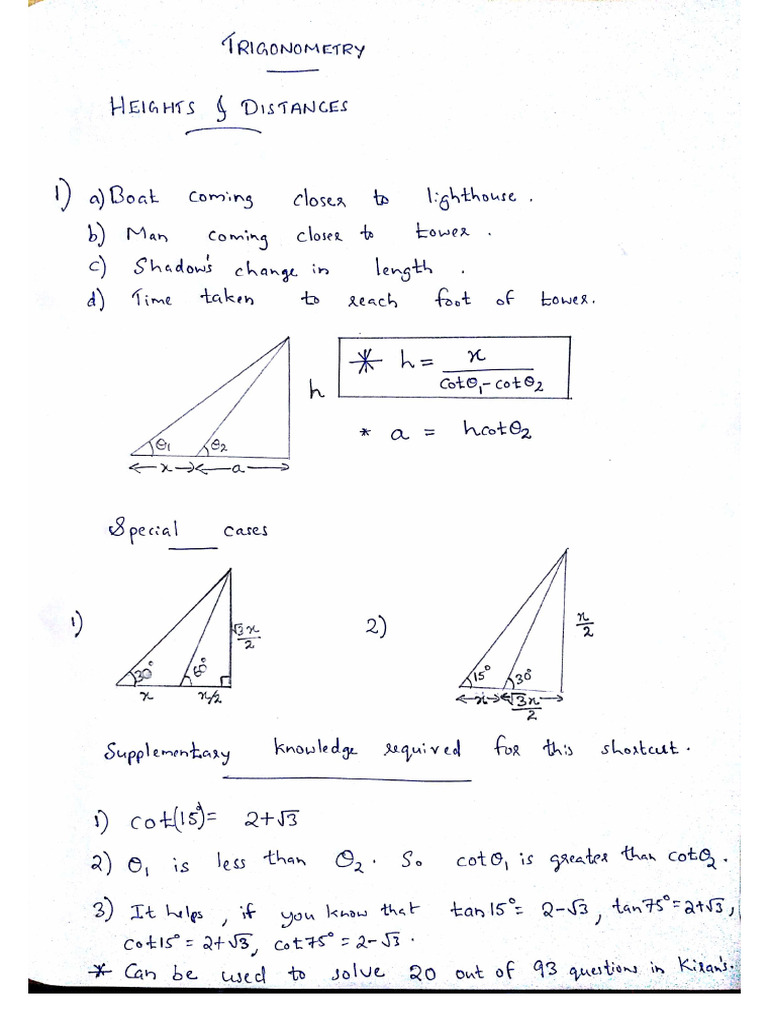 TRIGONOMETRY
HEIGHTS & DISTANCES
1) a) Boat coming closer to lighthouse.
b) Man coming closer to tower.
c) Shadow's change in length.
d) Time taken to reach foot of tower.
h
* h = x / (cotθ₁ - cotθ₂)
* a = hcotθ₂
θ₁ θ₂
x a
Special cases
1) 30° 60° √3x/2
x x/2
2) 15° 30° x/2
x √3x/2
Supplementary knowledge required for this shortcut.
1) cot(15°) = 2+√3
2) θ₁ is less than θ₂. So cotθ₁ is greater than cotθ₂.
3) It helps, if you know that tan15° = 2-√3, tan75° = 2+√3,
cot15° = 2+√3, cot75° = 2-√3.
* Can be used to solve 20 out of 93 questions in Kiran's.